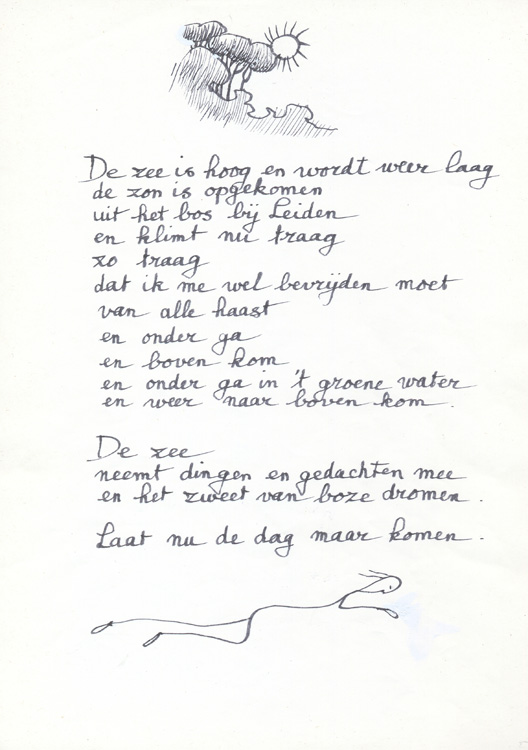 De zee is hoog en wordt weer laag
de zon is opgekomen
uit het bos bij Leiden
en klimt nu traag
zo traag
dat ik me wel bevrijden moet
van alle haast
en onder ga
en boven kom
en onder ga in 't groene water
en weer naar boven kom.
De zee
neemt dingen en gedachten mee
en het zweet van boze dromen.
Laat nu de dag maar komen.